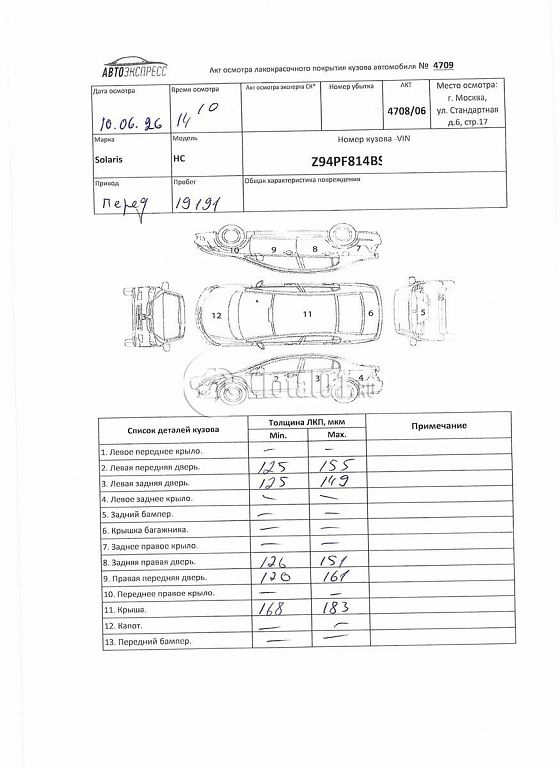 АВТОЭКСПРЕСС
Акт осмотра лакокрасочного покрытия кузова автомобиля № 4709
Дата осмотра
Время осмотра
Акт осмотра эксперта СК*
Номер убытка
АКТ
Место осмотра:
г. Москва,
ул. Стандартная
д.6, стр.17
10.06.26
14 10
4708/06
Марка
Модель
Номер кузова -VIN
Solaris
HC
Z94PF814BS
Привод
Пробег
Общая характеристика повреждения
перед
19191
10 9 8 7
3 12 11 6 5
2 3 4
Total01.ru
Список деталей кузова
Толщина ЛКП, мкм
Примечание
Min. Max.
1. Левое переднее крыло. — —
2. Левая передняя дверь. 125 155
3. Левая задняя дверь. 125 149
4. Левое заднее крыло. — —
5. Задний бампер. — —
6. Крышка багажника. — —
7. Заднее правое крыло. — —
8. Задняя правая дверь. 126 151
9. Правая передняя дверь. 120 161
10. Переднее правое крыло. — —
11. Крыша. 168 183
12. Капот. — —
13. Передний бампер. — —